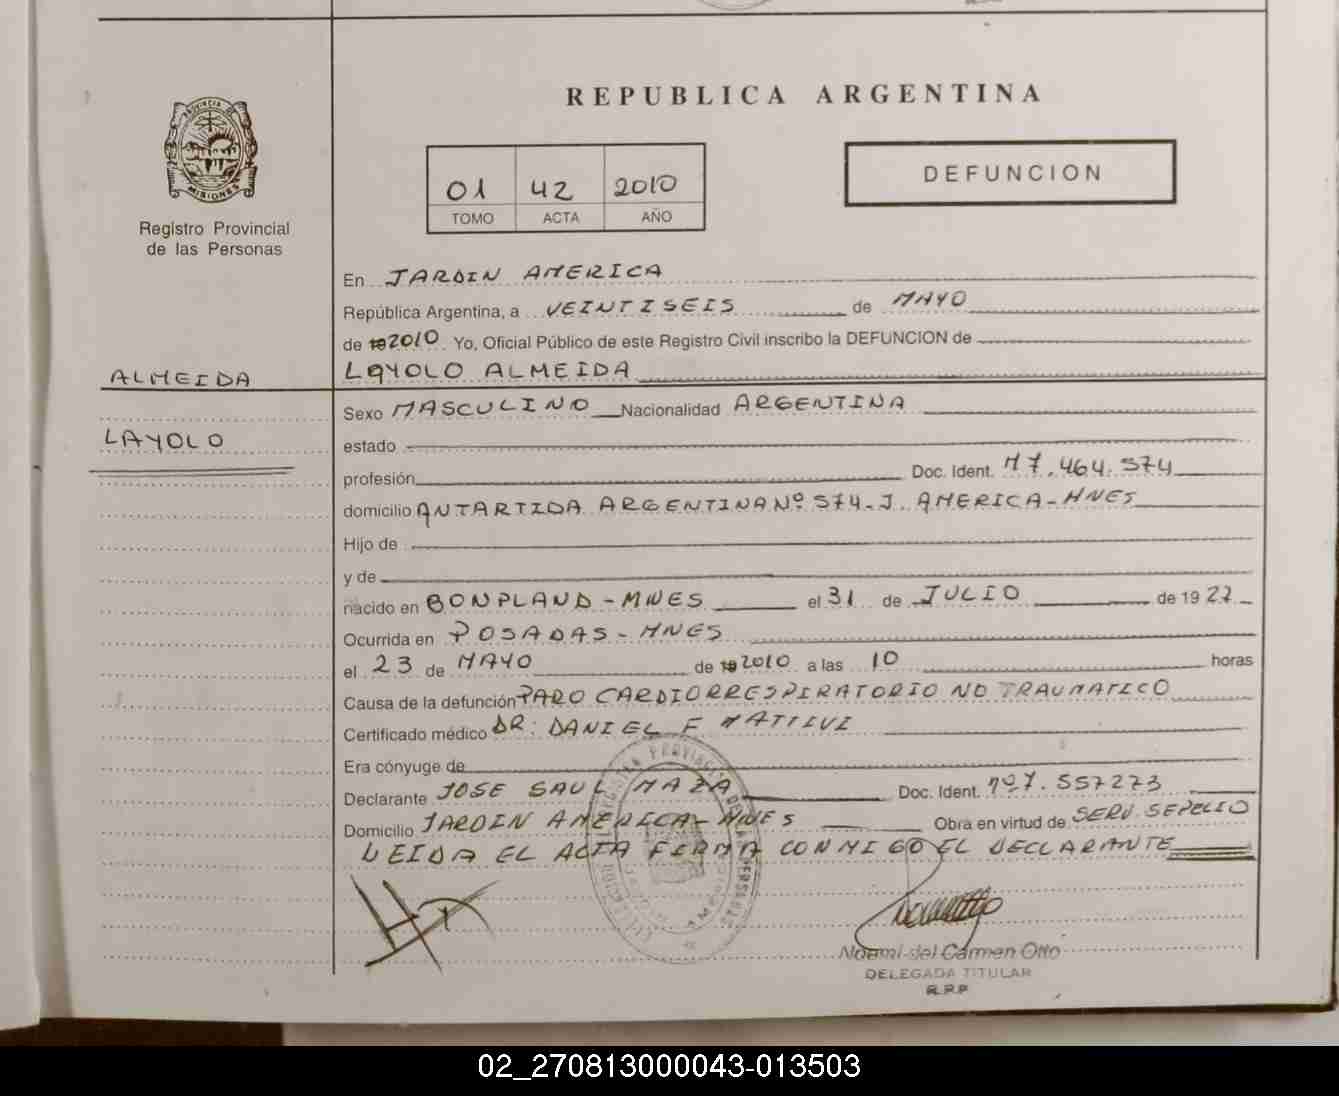 REPUBLICA ARGENTINA
PROVINCIA DE
MISIONES
Registro Provincial
de las Personas
01 42 2010
TOMO ACTA AÑO
DEFUNCION
En JARDIN AMERICA
República Argentina, a VEINTISEIS de MAYO
de 2010 Yo, Oficial Público de este Registro Civil inscribo la DEFUNCION de
ALMEIDA
LAYOLO ALMEIDA
Sexo MASCULINO Nacionalidad ARGENTINA
LAYOLO
estado
profesión Doc. Ident. M 7.464.574
domicilio ANTARTIDA ARGENTINA Nº 574-J. AMERICA-MNES
Hijo de
y de
nacido en BONPLAND-MNES el 31 de JULIO de 1922
Ocurrida en POSADAS-MNES
el 23 de MAYO de 2010 a las 10 horas
Causa de la defunción PARO CARDIORRESPIRATORIO NO TRAUMATICO
Certificado médico DR. DANIEL F.
Era cónyuge de
Declarante JOSE SAUL MAZA Doc. Ident. Nº 7.557273
Domicilio JARDIN AMERICA-MNES Obra en virtud de SERV. SEPELIO
LEIDA EL ACTA FIRMA CONMIGO EL DECLARANTE
Noemi del Carmen Otto
DELEGADA TITULAR
R.P.P
02_270813000043-013503